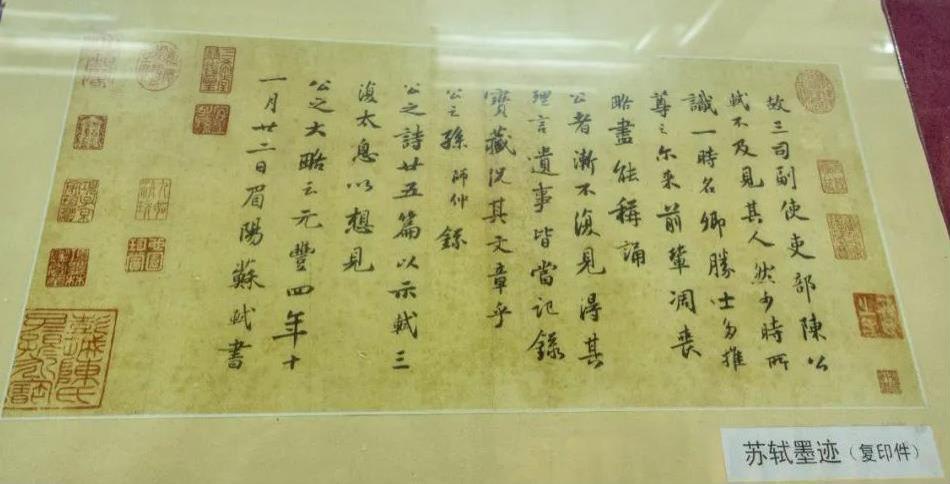 故三司副使吏部陳公
軾不及見其人然少時所
識一時名卿勝士多推
尊之尔来前輩凋喪
略盡能稱誦
公者漸不復見得其
理言遺事皆當記錄
寶藏況其文章乎
公之孫師仲錄
公之詩廿五篇以示軾三
復太息以想見
公之大略云元豐四年十
一月廿二日眉陽蘇軾書
苏轼墨迹（复印件）